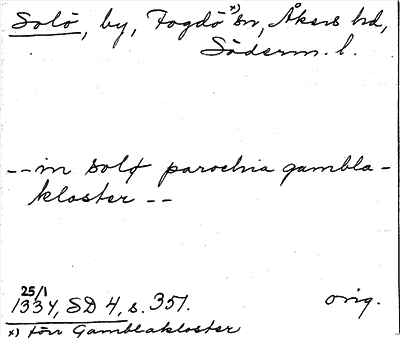 Solö, by, Fogdö x) sn, Åkers hd,
Söderm. l.
-- in solø parochia gambla-
kloster --
25/1
1334, SD 4, s. 351.
orig.
x) förr Gamblakloster